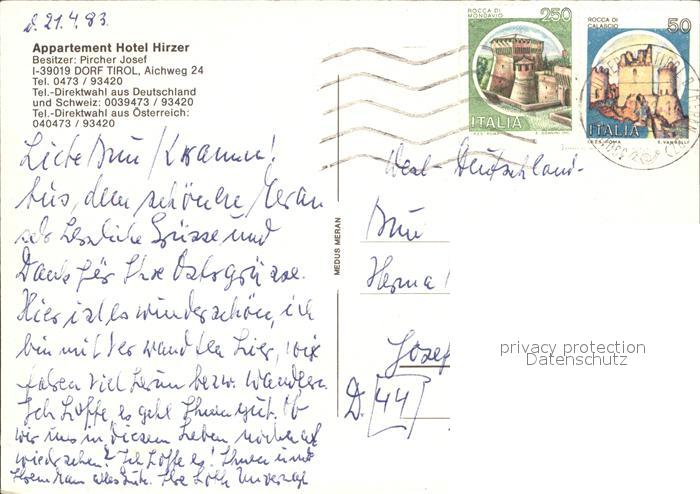 d. 21.4.83.
Appartement Hotel Hirzer
Besitzer: Pircher Josef
I-39019 DORF TIROL, Aichweg 24
Tel. 0473 / 93420
Tel.-Direktwahl aus Deutschland
und Schweiz: 0039473 / 93420
Tel.-Direktwahl aus Österreich:
040473 / 93420
Liebe Frau
Aus dem schönen Meran
sehr herzliche Grüsse und
Dank für Ihre Ostergrüsse.
Hier ist es wunderschön, ich
bin mit Verwandten hier, wir
fahren viel herum bezw. Wandern.
Ich hoffe, es geht Ihnen gut. Ob
wir uns in diesem Leben nochmal
wiedersehen? Ich hoffe es! Ihnen und
Ihrem Mann alles Gute. Ihre
MEDUS MERAN
ROCCA DI
MONDAVIO
250
ITALIA
I.P.Z.S. ROMA
ROCCA DI
CALASCIO
50
ITALIA
I.P.Z.S. ROMA
E. VANGELLI
West-Deutschland-
Frau
Herma
Josef
D. 44
privacy protection
Datenschutz